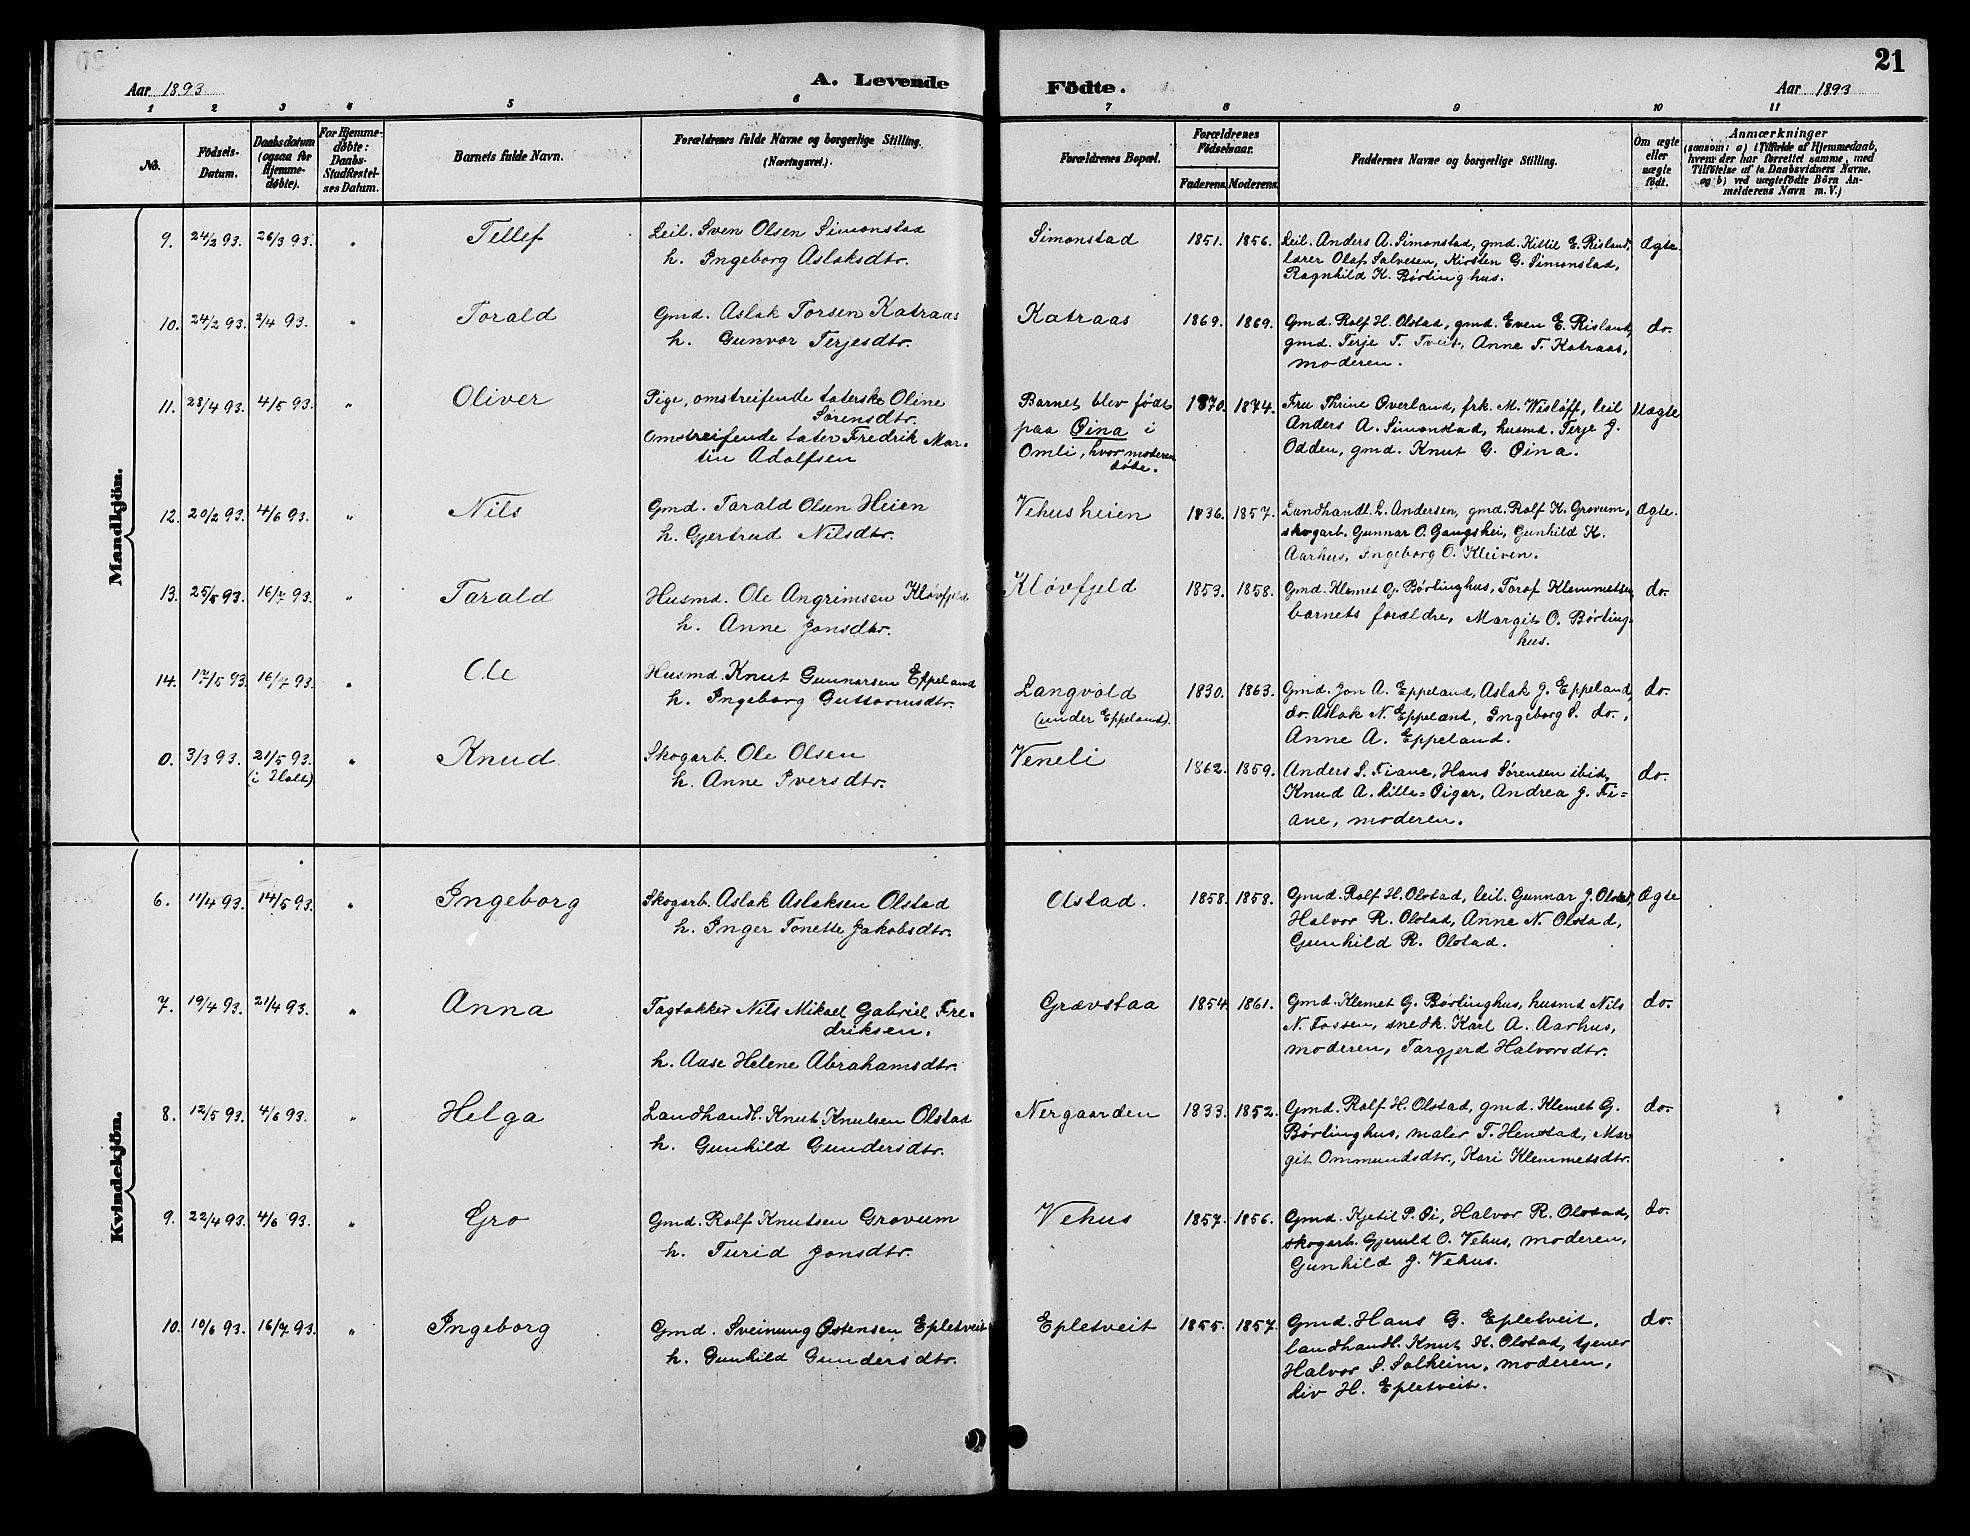 21
Aar 1893
A. Levende Födte.
Aar 1893
1 2 3 4 5 6 7 8 9 10 11
No.
Födsels-Datum.
Daabsdatum (ogsaa for Hjemme-döbte).
For Hjemme-döbte: Daabs-Stadfæstel-ses Datum.
Barnets fulde Navn.
Forældrenes fulde Navne og borgerlige Stilling. (Næringsvei.)
Forældrenes Bopæl.
Forældrenes Födselsaar.
Faderens. Moderens.
Faddernes Navne og borgerlige Stilling.
Om ægte eller uægte födt.
Anmærkninger
(saasom: a) i Tilfælde af Hjemmedaab,
hvem der har forrettet samme, med
Tilföielse af to Daabsvidners Navne.
og b) ved uægtefödte Börn An-
melderens Navn m. V.)
Mandkjön.
9. 24/2 93. 26/3 93. " Tellef
Leil. Sven Olsen Simonstad
h. Ingeborg Aslaksdtr.
Simonstad 1851. 1856.
Leil. Anders A. Simonstad, gmd. Kittil E. Risland,
lærer Olaf Salvesen, Kirsten G. Simonstad,
Ragnhild K. Børtinghus.
Ægte.
10. 24/2 93. 2/4 93. " Torald
Gmd. Aslak Torsen Katraas
h. Gunvor Terjesdtr.
Katraas 1869. 1869.
Gmd. Rolf H. Olstad, gmd. Even E. Risland,
gmd. Terje T. Tveit, Anne T. Katraas,
moderen.
do.
11. 28/4 93. 4/5 93. " Oliver
Pige, omstreifende taterske Oline
Sørensdtr.
Omstreifende tater Fredrik Mar-
tin Adolfsen
Barnet blev født
paa Øina i
Omli, hvor moderen
døde.
1870. 1874.
Fru Thrine Overland, frk. M. Wisløff, leil
Anders A. Simonstad, husmd. Terje J.
Odden, gmd. Knut G. Øina.
Uægte
12. 20/2 93. 4/6 93. " Nils
Gmd. Tarald Olsen Heien
h. Gjertrud Nilsdtr.
Vehusheien 1836. 1857.
Landhandl. L. Andersen, gmd. Rolf K. Grovum,
skogarb. Gunnar O. Gangshei, Gunhild K.
Aarhus, Ingeborg O. Kleiven.
Ægte.
13. 25/5 93. 16/7 93. " Tarald
Husmd. Ole Angrimsen Kløvfjeld
h. Anne Jonsdtr.
Kløvfjeld 1853. 1858.
Gmd. Klemet G. Børtinghus, Toraf Klemmetsen
barnets forældre, Margit O. Børting-
hus.
do.
14. 17/5 93. 16/7 93. " Ole
Husmd. Knut Gunnarsen Eppeland
h. Ingeborg Guttormsdtr.
Langvold
(under Eppeland).
1830. 1863.
Gmd. Jon A. Eppeland, Aslak J. Eppeland,
do. Aslak N. Eppeland, Ingeborg S. do.,
Anne A. Eppeland.
do.
0. 3/3 93. 21/5 93. " Knud
(i Holt)
Skogarb. Ole Olsen
h. Anne Iversdtr.
Veneli 1862. 1859.
Anders S. Fiane, Hans Sørensen ibid,
Knud A. Lille-Øigar, Andrea J. Fi-
ane, moderen.
do.
Kvindekjön.
6. 11/4 93. 14/5 93. " Ingeborg
Skogarb. Aslak Aslaksen Olstad
h. Inger Tonette Jakobsdtr.
Olstad. 1858. 1858.
Gmd. Rolf H. Olstad, leil. Gunnar J. Olstad,
Halvor R. Olstad, Anne N. Olstad,
Gunhild R. Olstad.
Ægte
7. 19/4 93. 21/4 93. " Anna
Tagtækker Nils Mikael Gabriel Fre-
driksen.
h. Aase Helene Abrahamsdtr.
Grævstaa 1854. 1861.
Gmd. Klemet G. Børtinghus, husmd Nils
N. Fossen, snedk. Karl A. Aarhus,
moderen, Targjerd Halvorsdtr.
do.
8. 12/5 93. 4/6 93. " Helga
Landhandl. Knut Knutsen Olstad
h. Gunhild Gundersdtr.
Nergaarden 1833. 1852.
Gmd. Rolf H. Olstad, gmd. Klemet G.
Børtinghus, maler T. Henstad, Mar-
git Ommundsdtr., Kari Klemmetsdtr.
do.
9. 22/4 93. 4/6 93. " Gro
Gmd. Rolf Knutsen Grovum
h. Turid Jonsdtr.
Vehus 1857. 1856.
Gmd. Kjetil P. Øi, Halvor R. Olstad,
skogarb. Gjeruld O. Vehus, moderen,
Gunhild J. Vehus.
do.
10. 10/6 93. 16/7 93. " Ingeborg
Gmd. Sveinung Østensen Epletveit
h. Gunhild Gundersdtr.
Epletveit 1855. 1857.
Gmd. Hans G. Epletveit,
landhandl. Knut K. Olstad, tjener
Halvor S. Solheim, moderen,
Liv H. Epletveit.
do.